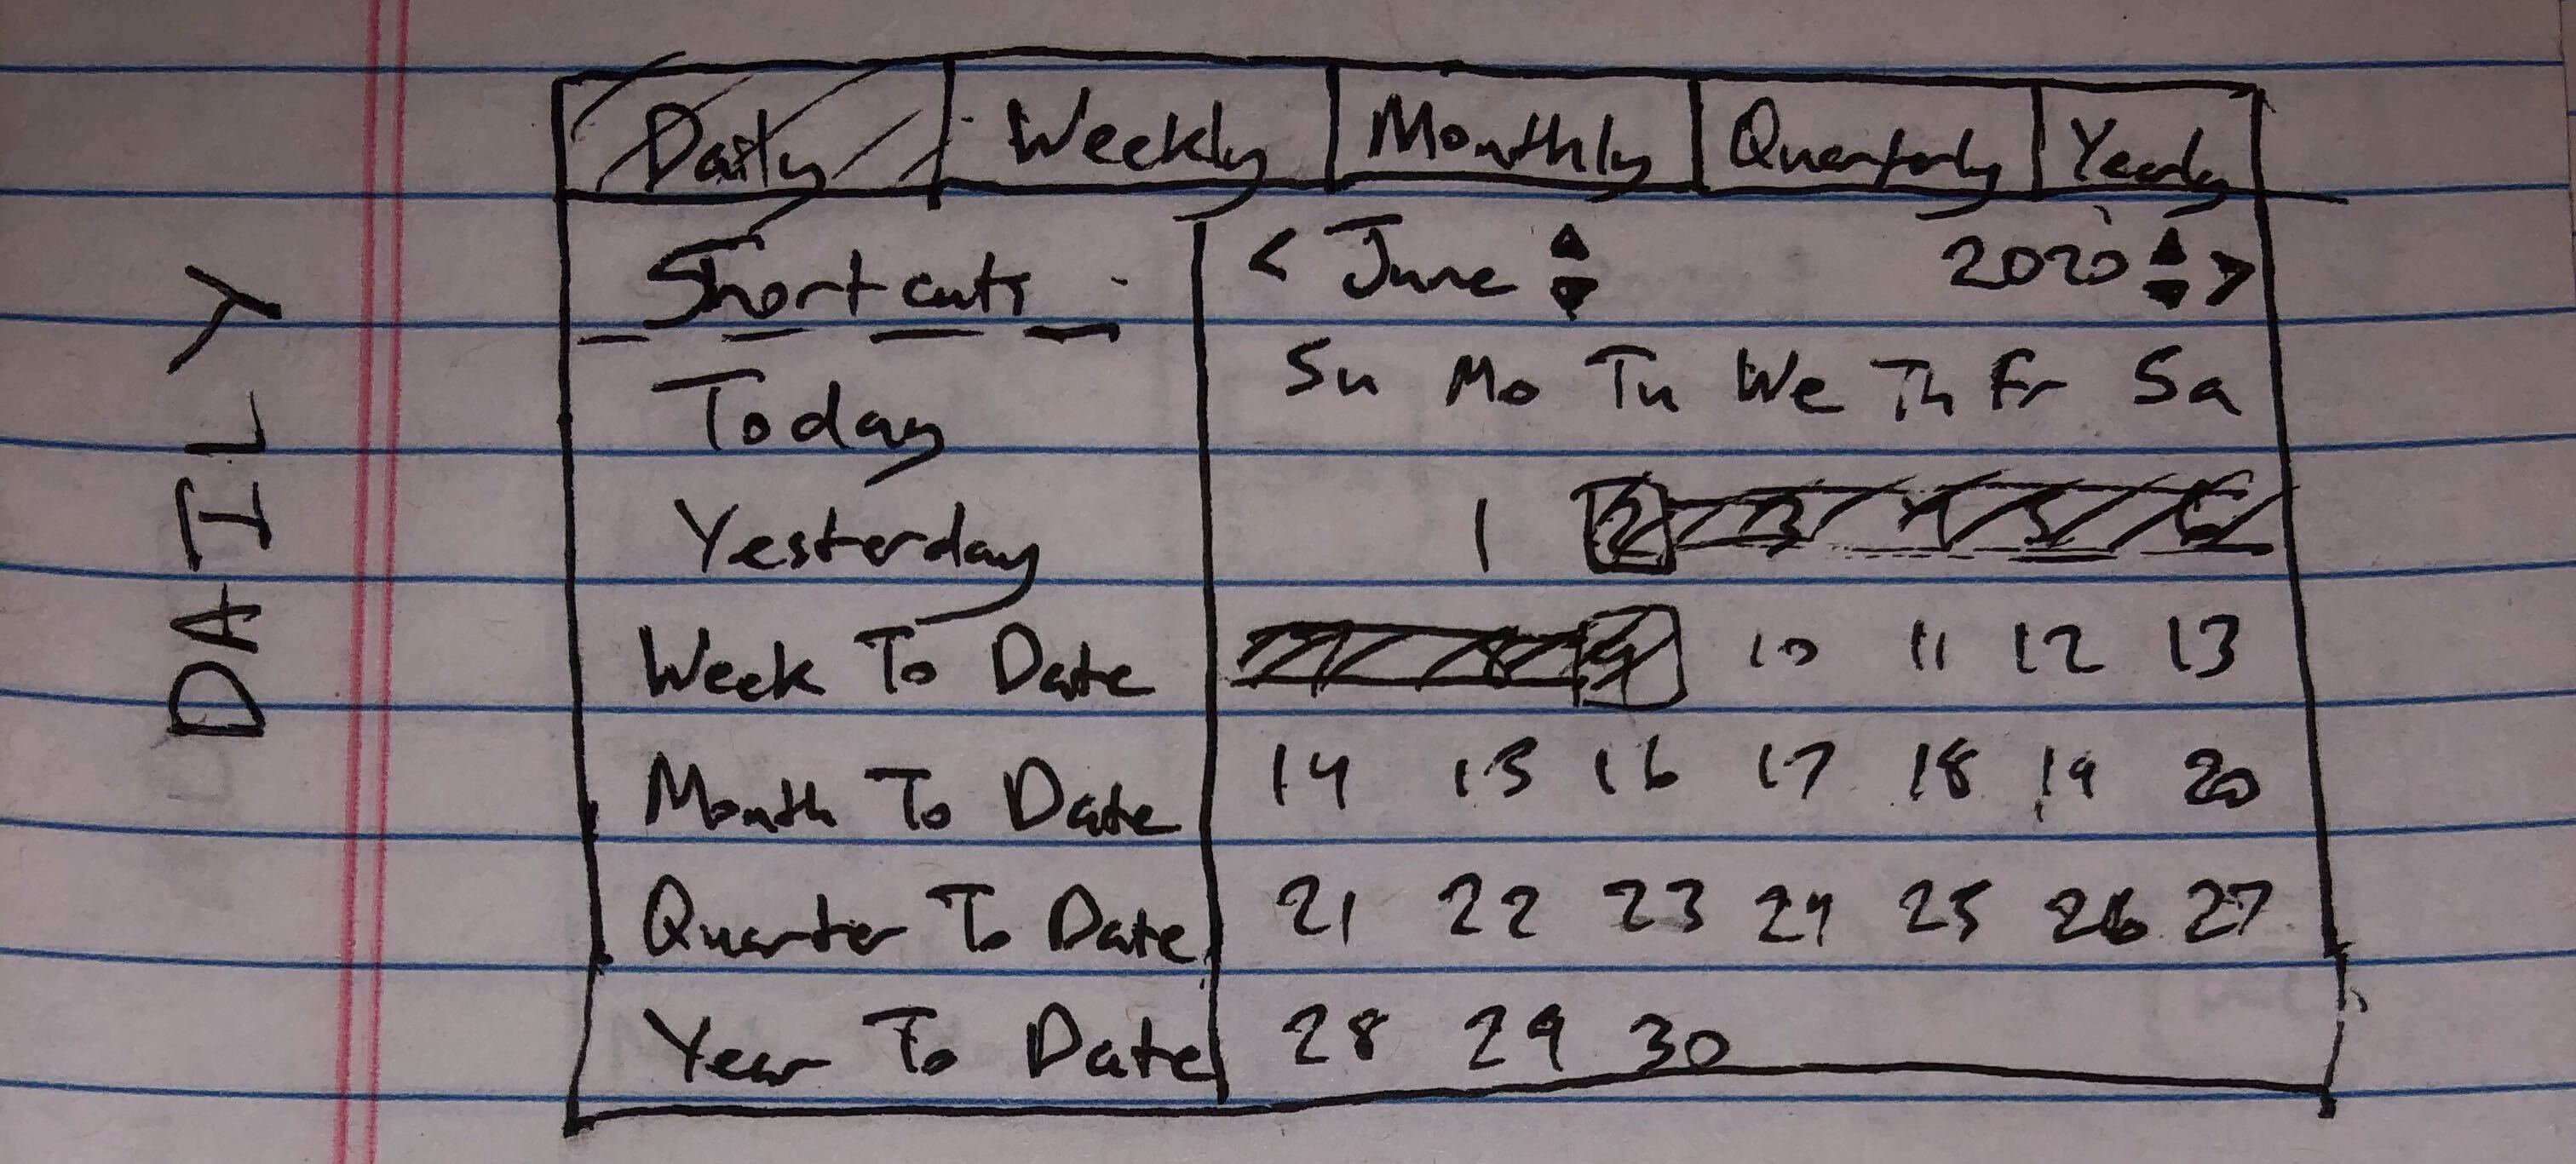 DAILY
Daily Weekly Monthly Quarterly Yearly
Shortcuts < June 2020 >
Su Mo Tu We Th Fr Sa
Today
Yesterday 1 2 3 4 5 6
Week To Date 7 8 9 10 11 12 13
Month To Date 14 15 16 17 18 19 20
Quarter To Date 21 22 23 24 25 26 27
Year To Date 28 29 30